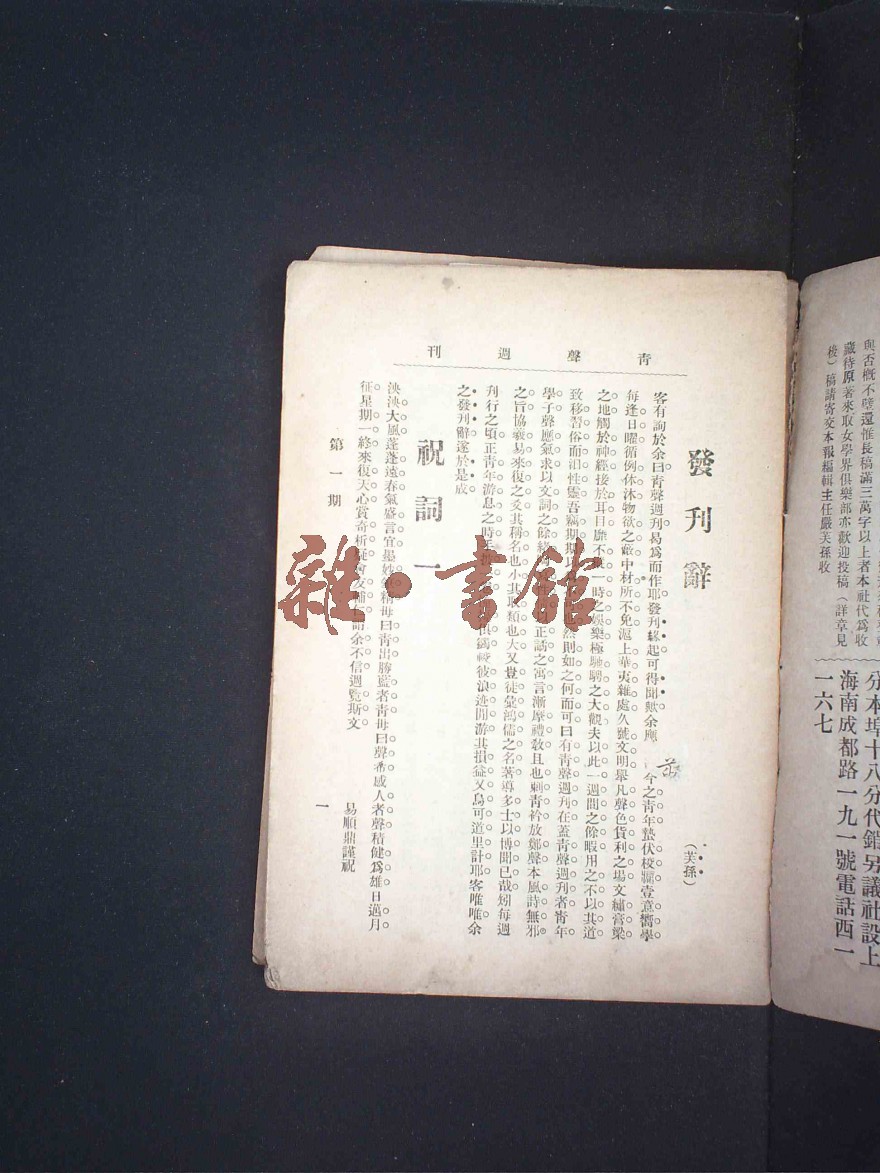 與否概不璧還惟長稿滿三萬字以上者本社代爲收
藏待原著來取女學界俱樂部亦歡迎投稿（詳章見
後）稿請寄交本報編輯主任嚴芙孫收
分本埠十八分代銷另議社設上
海南成都路一九一號電話西一
一六七
青聲週刊
發刊辭
（芙孫）
客有詢於余曰靑聲週刊曷爲而作耶發刊緣起可得聞歟余應 今之靑年墊伏校壖壹意嚮學
每逢日曜循例休沐物欲之蔽中材所不免滬上華夷雜處久號文明舉凡聲色貨利之場文繡膏粱
之地觸於神經接於耳目靡不 一時之娛樂極馳騁之大觀夫以此一週間之餘暇用之不以其道
致移習俗而汨性靈吾竊期期以 然則如之何而可曰有靑聲週刊在蓋靑聲週刊者靑年
學子聲應氣求以文詞之餘緒 正話之寓言漸摩禮敎且也刺靑衿放鄭聲本風詩無邪
之旨協襄易來復之爻其稱名也小其取類也大又豈徒彙鴻儒之名著導多士以博聞已哉矧每週
刊行之頃正靑年游息之時手 彼浪迹閒游其損益又烏可道里計耶客唯唯余
之發刊辭遂於是成
祝詞一
泱泱大風蓬蓬遠春氣盛言宜墨妙 稱毋曰靑出勝藍者靑毋曰聲希感人者聲積健爲雄日邁月
征星期一終來復天心賞奇析疑會友輔 余不信週覽斯文
易順鼎謹祝
第一期
一
雜·書館